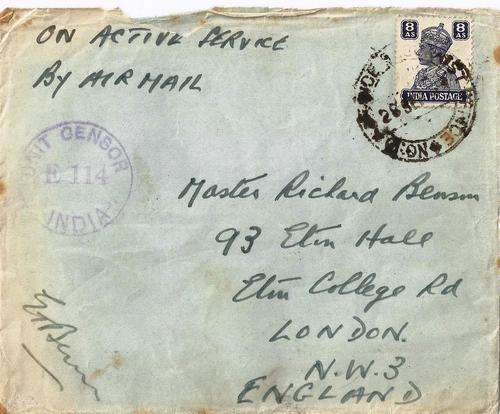 ON ACTIVE SERVICE
BY AIR MAIL
8 AS 8 AS
INDIA POSTAGE
UNIT CENSOR
E 114
INDIA
Master Richard Benson
93 Eton Hall
Eton College Rd
LONDON.
N.W.3
ENGLAND